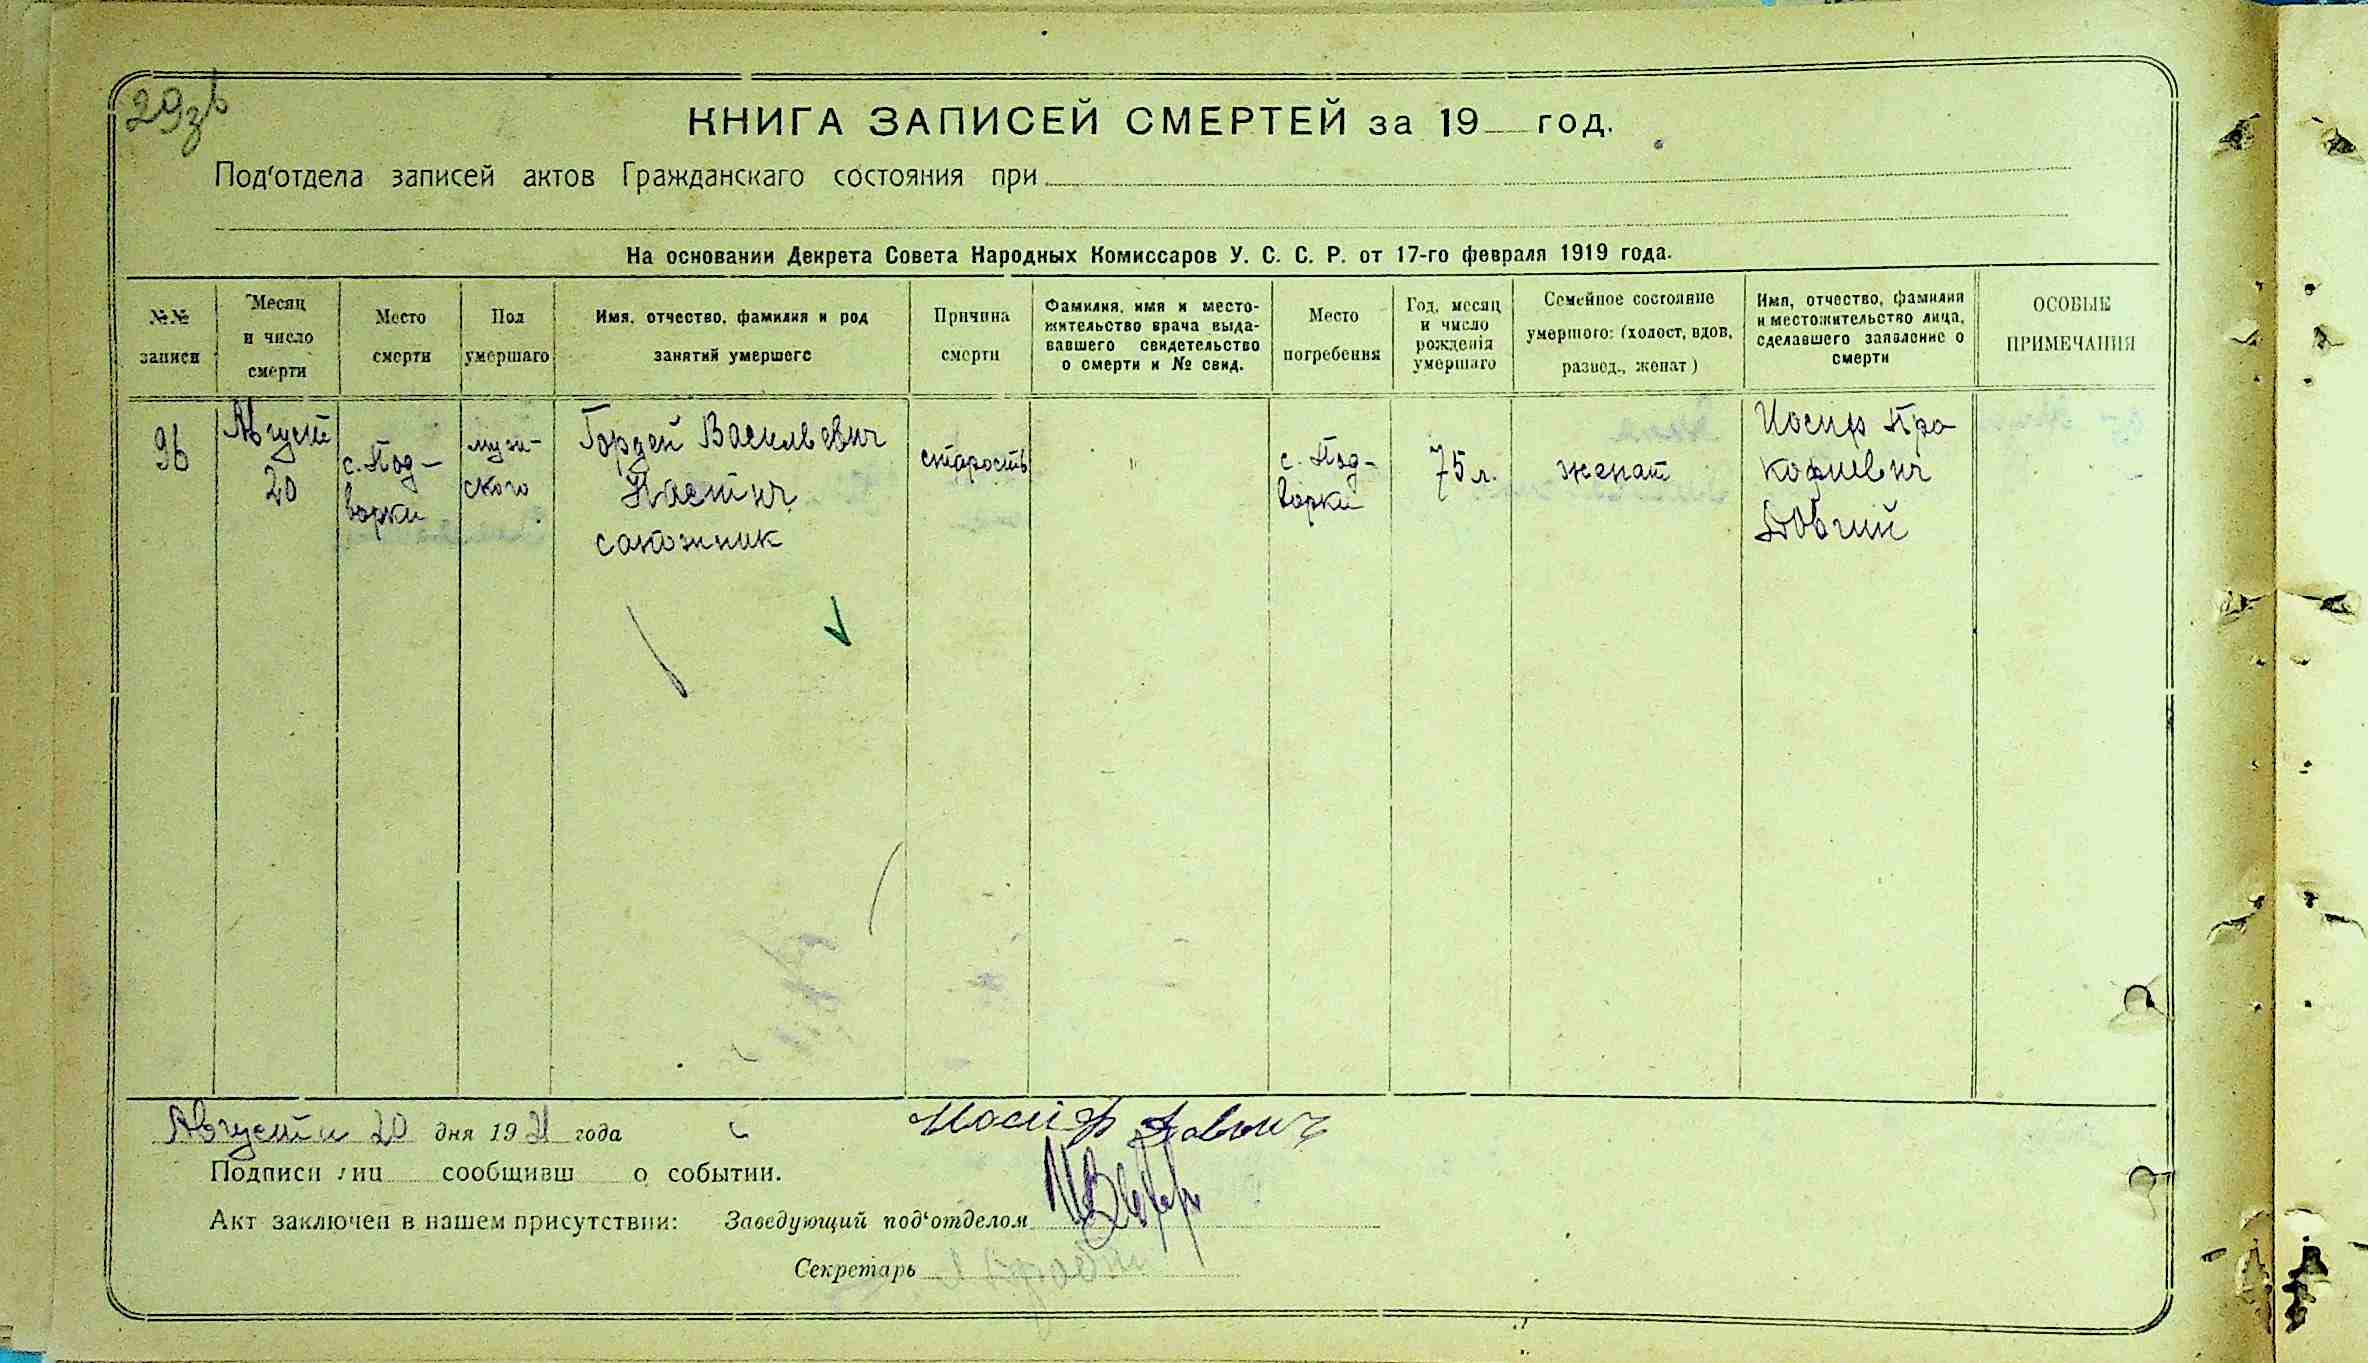 29зв
КНИГА ЗАПИСЕЙ СМЕРТЕЙ за 19 год.
Под'отдела записей актов Гражданскаго состояния при
На основании Декрета Совета Народных Комиссаров У. С. С. Р. от 17-го февраля 1919 года.
№№
записи
Месяц
и число
смерти
Место
смерти
Пол
умершаго
Имя, отчество, фамилия и род
занятий умершего
Причина
смерти
Фамилия, имя и место-
жительство врача выда-
вавшего свидетельство
о смерти и № свид.
Место
погребения
Год, месяц
и число
рождения
умершаго
Семейное состояние
умершого: (холост, вдов,
развед., женат)
Имя, отчество, фамилия
и местожительство лица,
сделавшего заявление о
смерти
ОСОБЫЕ
ПРИМЕЧАНИЯ
96
Август
20
с. Под-
ворки
муж-
ского
Гордей Васильевич
сапожник
старость
с. Под-
ворки
75 л.
женат
Иосиф Про
кофиевич
Довгий
Августа 20 дня 1921 года
Подписи лиц сообщивш о событии.
Акт заключен в нашем присутствии: Заведующий под'отделом
Секретарь